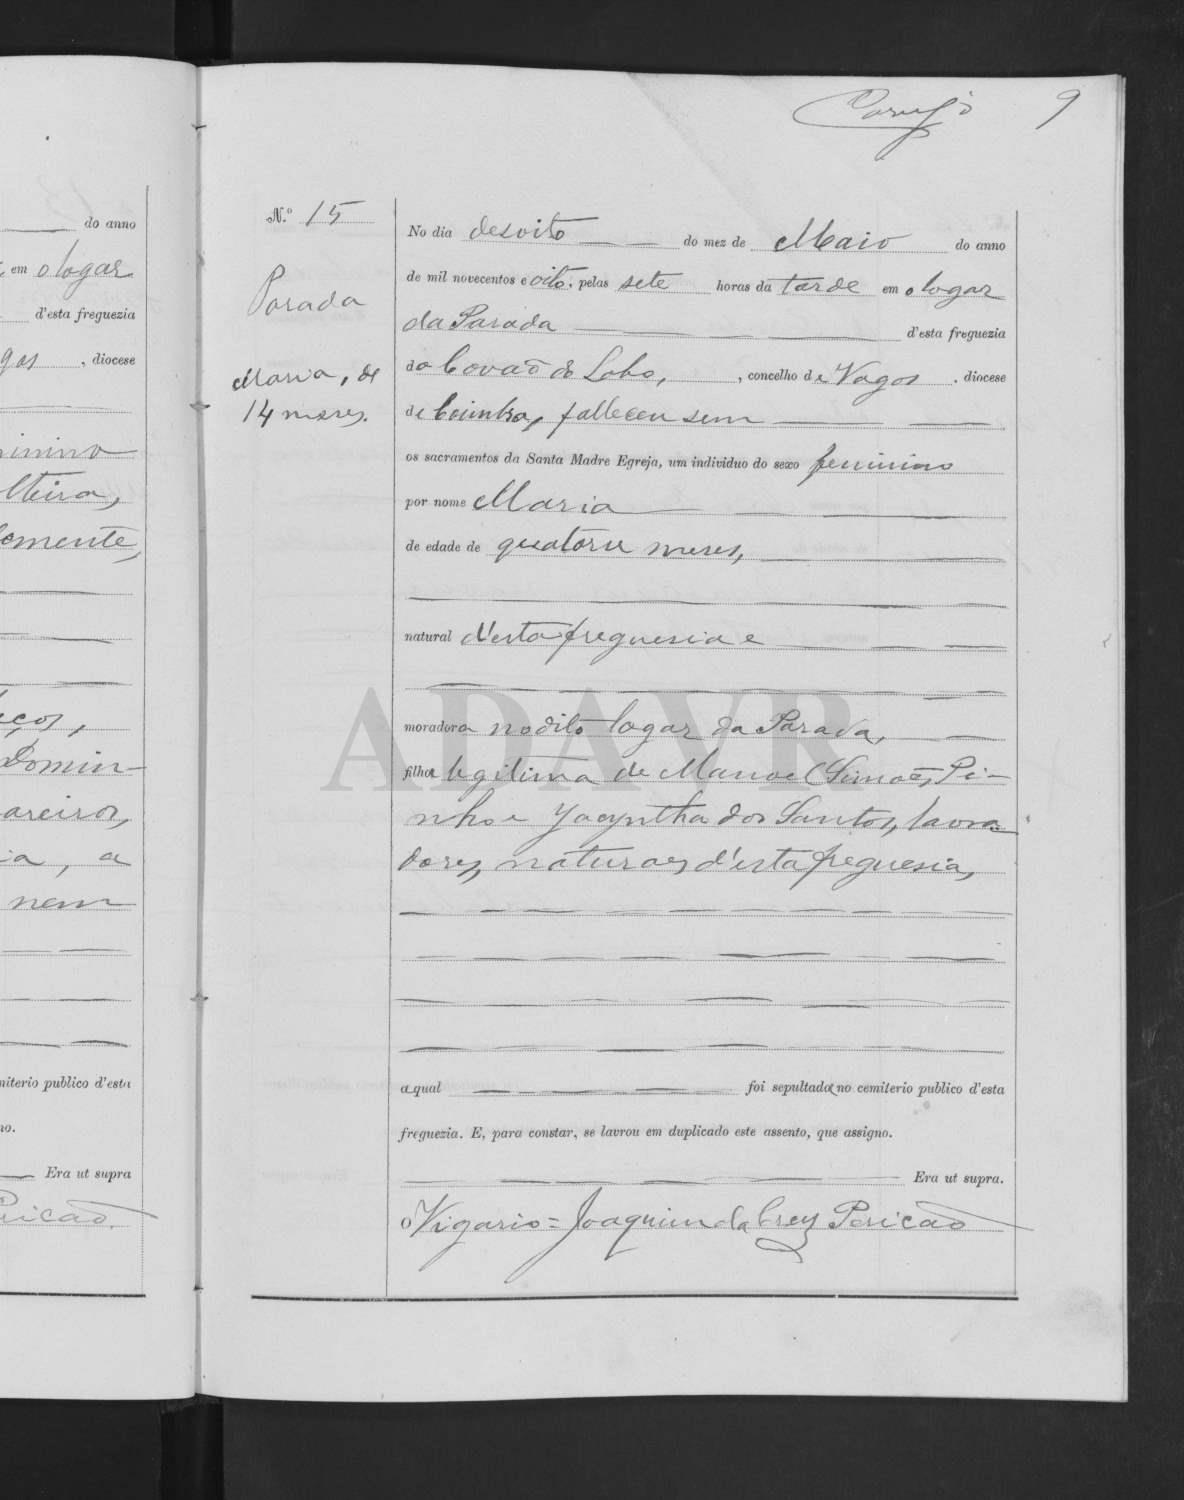 9
N.º 15
Parada
Maria, de
14 meses.
No dia desoito do mez de Maio do anno
de mil novecentos e oito, pelas sete horas da tarde em o logar
da Parada d'esta freguezia
do Covaõ do Lobo, , concelho de Vagos , diocese
de Coimbra, falleceu sem
os sacramentos da Santa Madre Egreja, um individuo do sexo feminino
por nome Maria
de edade de quatorze meses,
natural d'esta freguesia e
moradora no dito logar da Parada,
filha legitima de Manoel Simoẽs Pi-
nho e Jacyntha dos Santos, lavra-
dores, naturaes d'esta freguesia,
a qual foi sepultada no cemiterio publico d'esta
freguezia. E, para constar, se lavrou em duplicado este assento, que assigno.
Era ut supra.
O Vigario = Joaquim da Cruz Pericaõ
ADAVR
do anno
em o logar
d'esta freguezia
gos , diocese
inino
lteira,
emente,
Domin-
areiros,
ia, a
nem
miterio publico d'esta
no.
Era ut supra
Pericaõ.